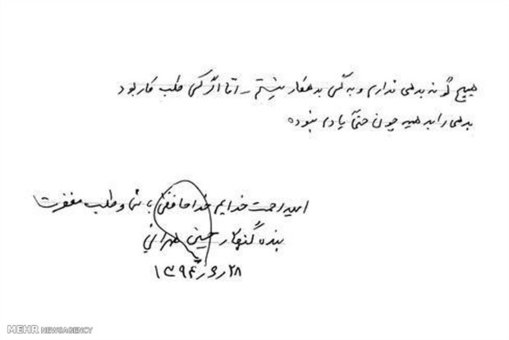 هیچ گونه بدهی ندارم و به کسی بدهکار نیستم - اما اگر کسی طلب کار بود
بدهی را بدهید چون حتماً یادم نبوده
امید رحمت خدایم خداحافظی با شما و طلب مغفرت
بنده گنهکار حسینی طهرانی
۱۳۹۴٫۶٫۲۸
MEHR NEWSAGENCY